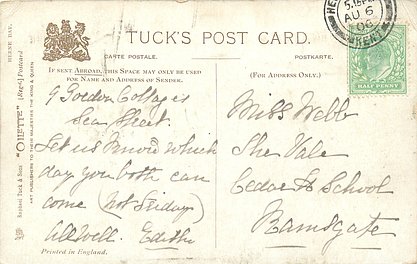 TUCK'S POST CARD.
CARTE POSTALE.
POSTKARTE.
IF SENT ABROAD, THIS SPACE MAY ONLY BE USED
FOR NAME AND ADDRESS OF SENDER.
(FOR ADDRESS ONLY.)
HERNE BAY.
Raphael Tuck & Sons' "OILETTE" [Regd.] Postcard
ART PUBLISHERS TO THEIR MAJESTIES THE KING & QUEEN
9 Gordon Cottages
Sea Street.
Let us know which
day you both can
come (Not Friday)
All Well. Edith
Printed in England.
AU 6
06
KENT
HALF PENNY
Miss Webb
The Vale
Cedar H School
Ramsgate